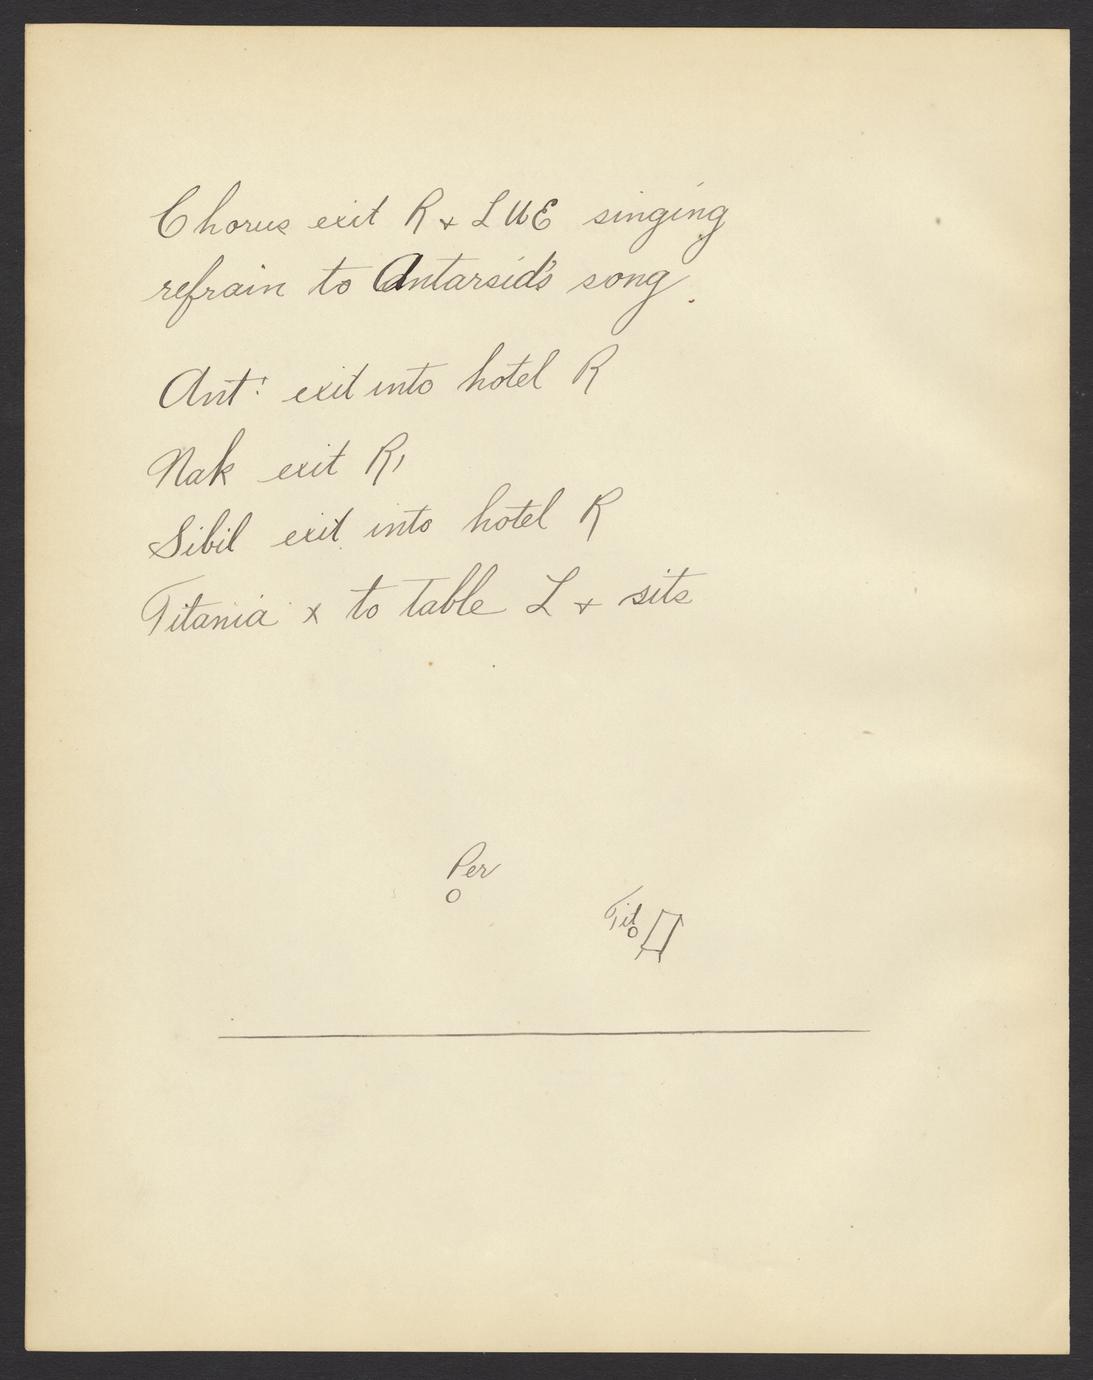 Chorus exit R + L U E singing
refrain to Antarsid's song.
Ant: exit into hotel R
Nak exit R1
Sibil exit into hotel R
Titania x to table L + sits
Per
Tit